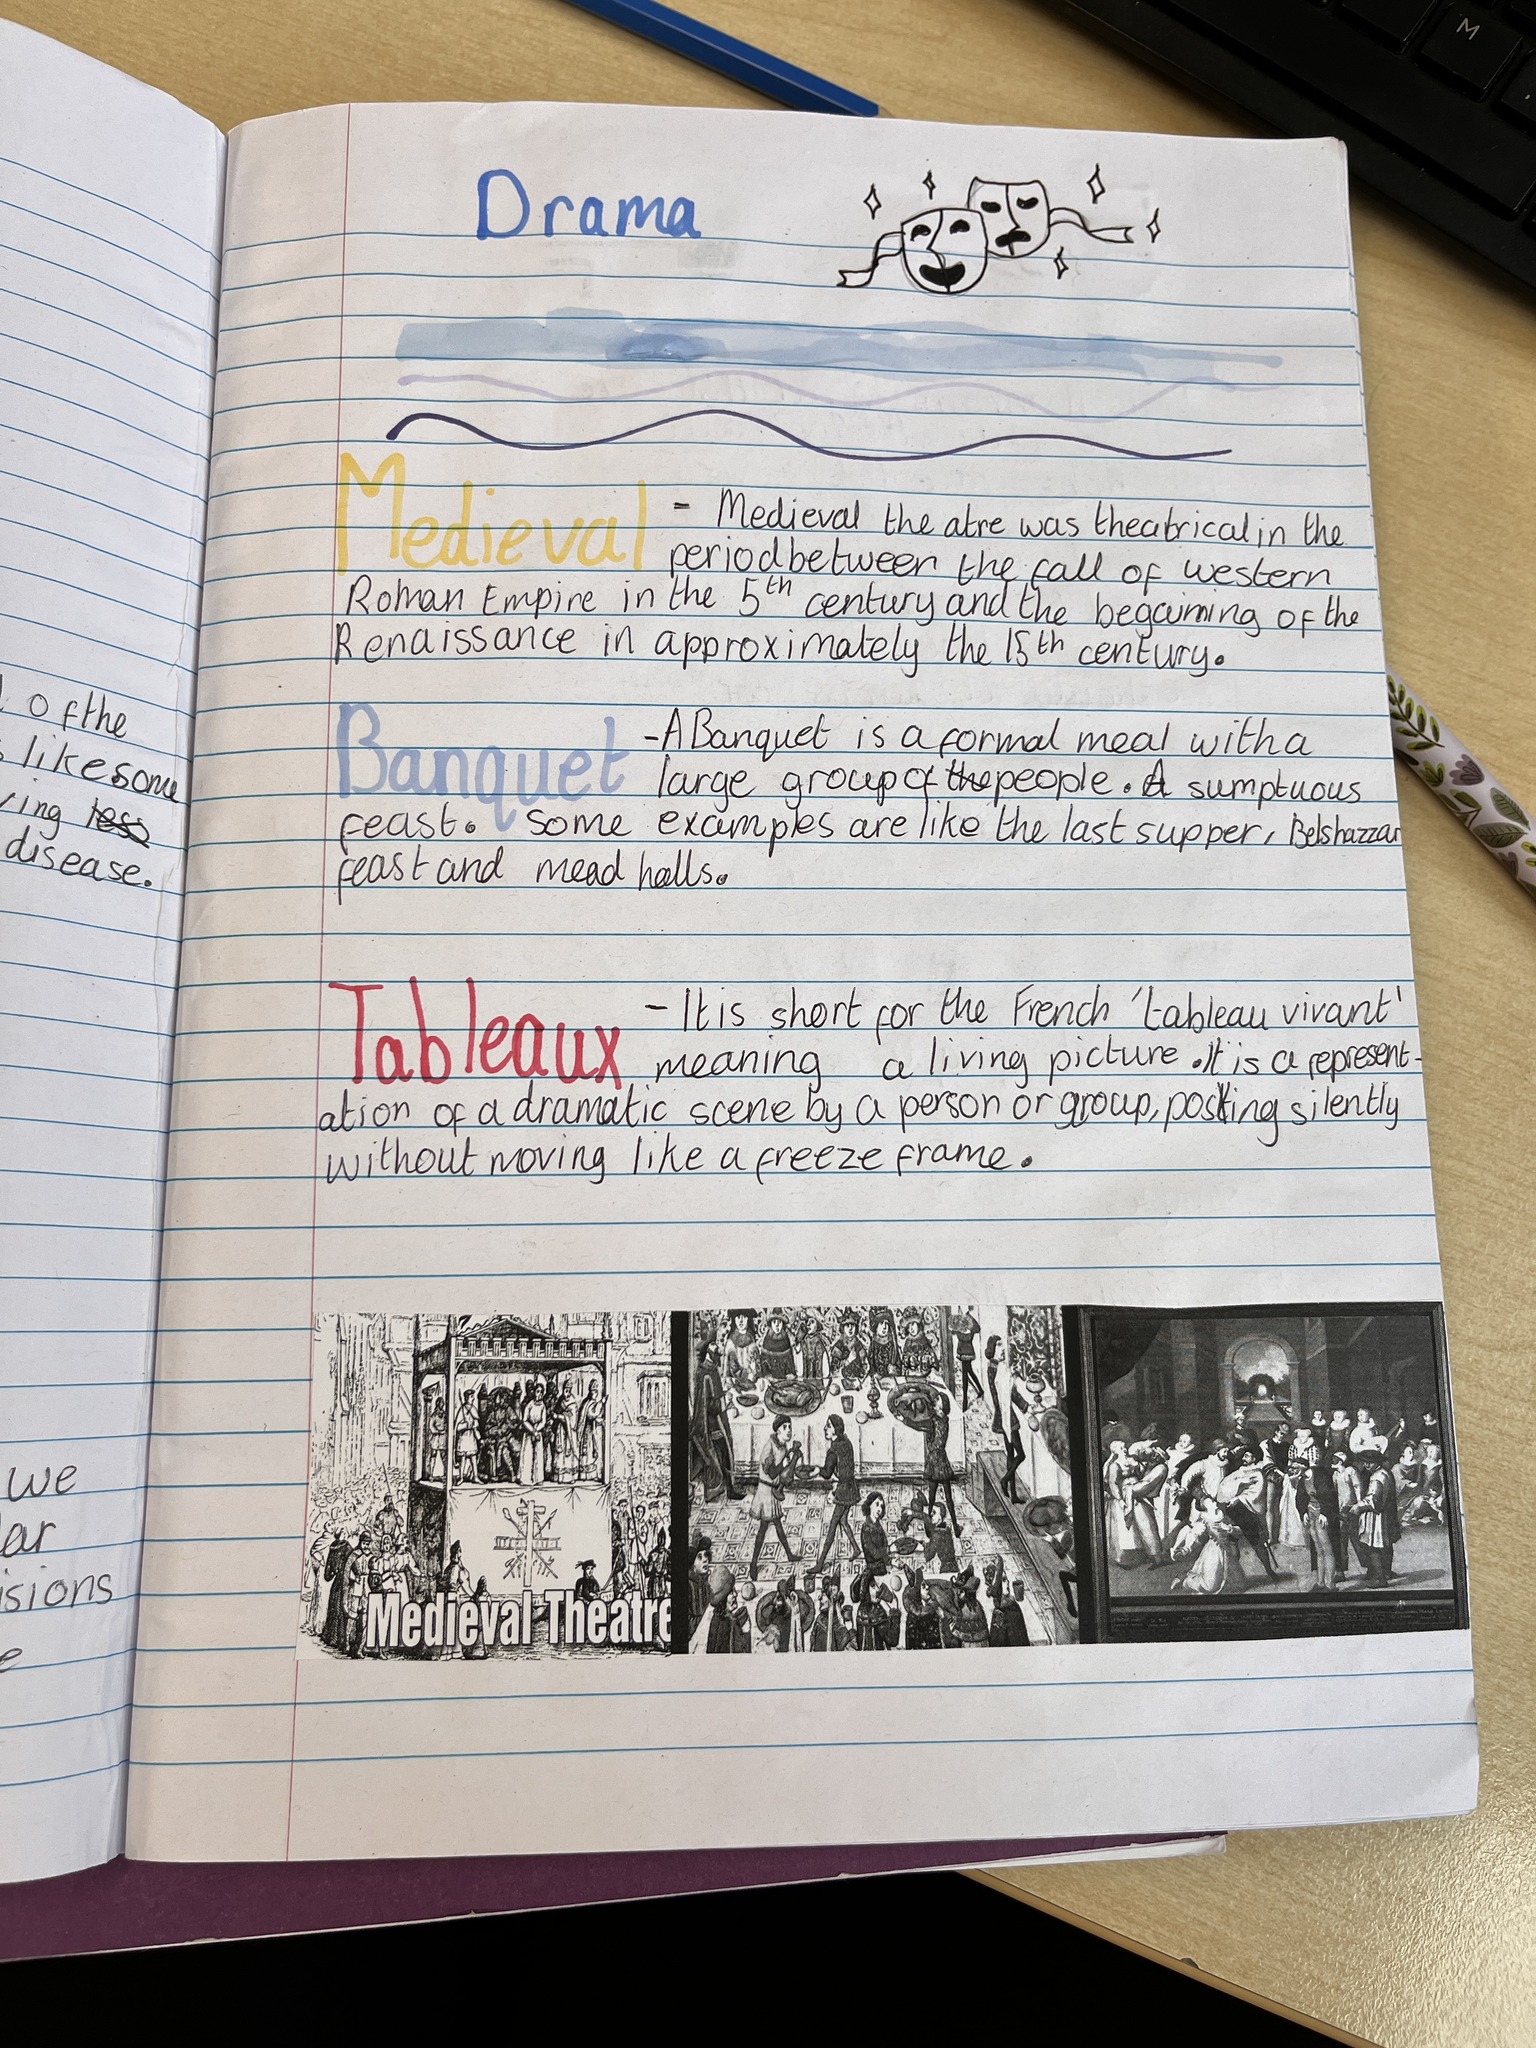 Drama
Medieval - Medieval the atre was theatrical in the
period between the fall of western
Roman Empire in the 5th century and the begaining of the
Renaissance in approximately the 15th century.
Banquet - A Banquet is a formal meal with a
large group of the people. A sumptuous
feast. Some examples are like the last supper, Belshazzar
feast and mead halls.
Tableaux - It is short for the French 'tableau vivant'
meaning a living picture. It is a represent-
ation of a dramatic scene by a person or group, posing silently
without moving like a freeze frame.
Medieval Theatre
of the
like some
ring less
disease.
we
lar
isions
e
M